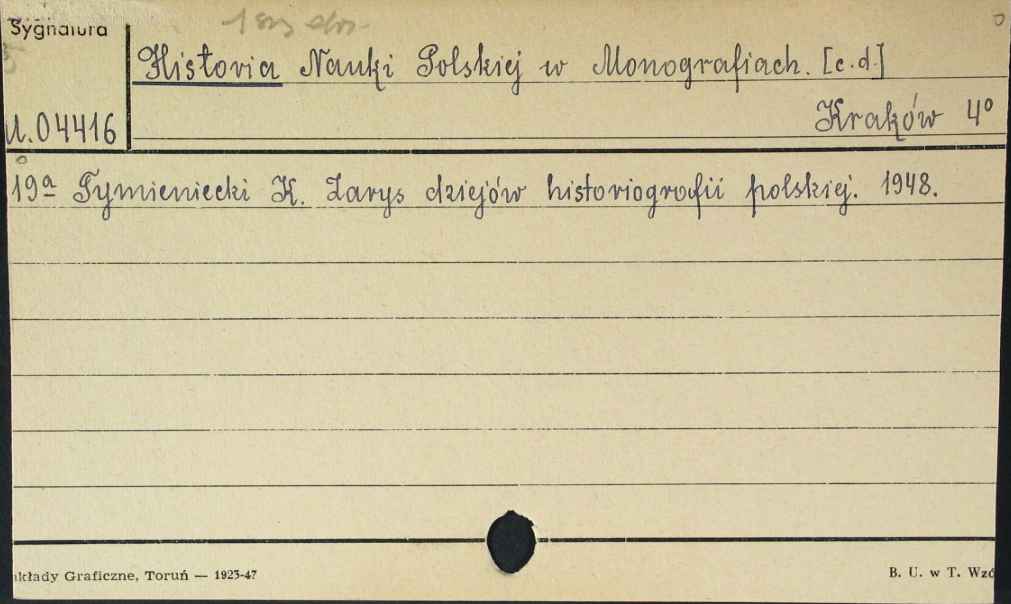 Sygnatura
Historia Nauki Polskiej w Monografiach. [c.d.]
U.04416
Kraków 4º
19ª Tymieniecki K. Zarys dziejów historiografii polskiej. 1948.
kłady Graficzne, Toruń — 1923-47
B. U. w T. Wzó